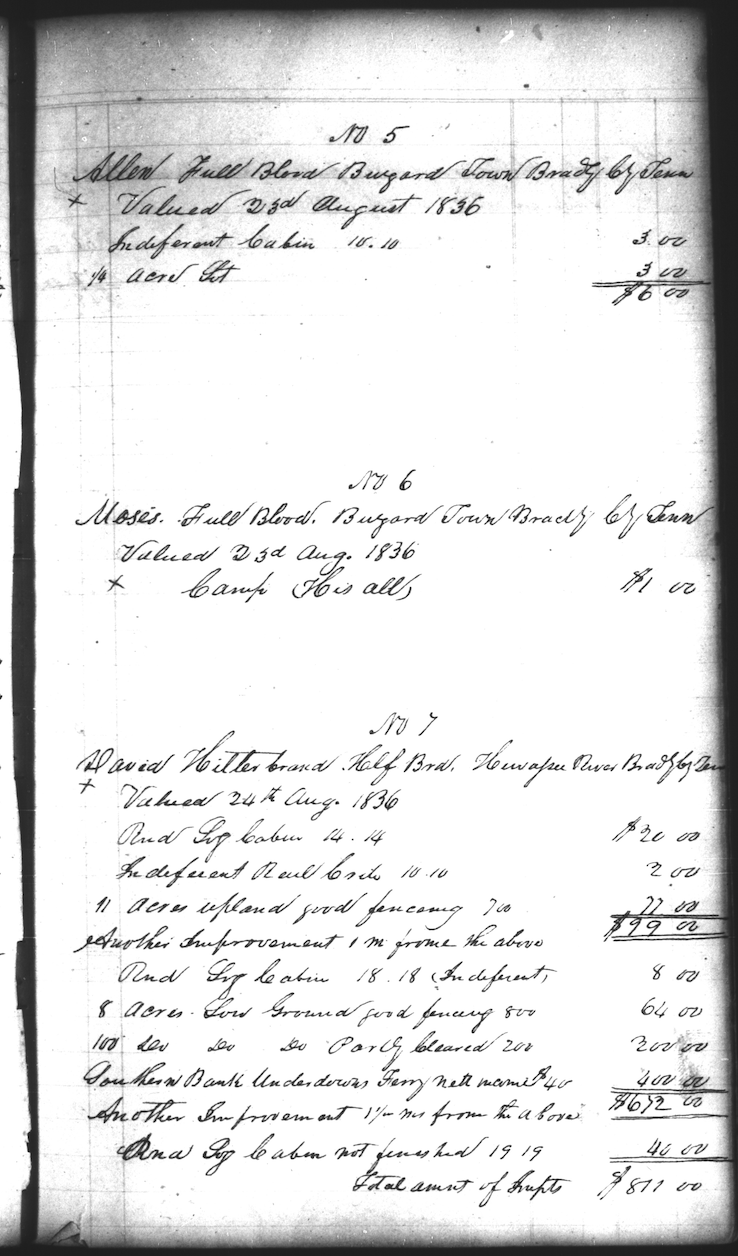 No 5
Allen Full Blood Buzard Town Bradly Cy Tenn
+ Valued 23d August 1836
Indeferent Cabin 10.10 3 00
1/4 acre Lot 3 00
$6 00
No 6
Moses. Full Blood. Buzard Town Bradly Cy Tenn
Valued 23d Aug. 1836
+ Camp (His all) $1 00
No 7
David Hilterbrand Half Brd. Hiwassee River Bradly Cy Tenn
+ Valued 24th Aug. 1836
Rnd Log Cabin 14.14 $20 00
Indeferent Rail Crib 10.10 2 00
11 Acres upland good fenceing 700 77 00
$99 00
Another Improvement 1 m frome the above
Rnd Log Cabin 18.18 (Indeferent) 8 00
8 Acres Low Ground good fenceng 800 64 00
100 Do Do Do Partly Cleared 200 200 00
Southern Bank Underdowns Ferry nett income $40 400 00
$672 00
Another Improvement ms from the above
Rnd Log Cabin not fineshed 19 19 40 00
Total amnt of Impts $811 00